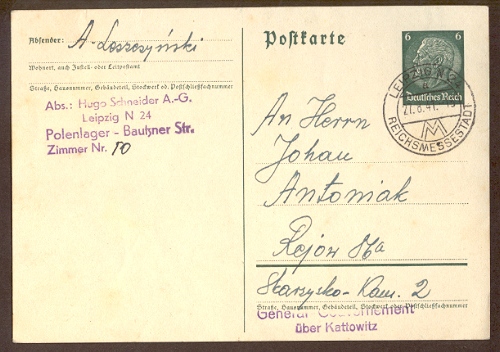 Absender: A. Loszczyński
Wohnort, auch Zustell- oder Leitpostamt
Straße, Hausnummer, Gebäudeteil, Stockwerk od. Postschließfachnummer
Abs.: Hugo Schneider A.-G.
Leipzig N 24
Polenlager - Bautzner Str.
Zimmer Nr. 10
Postkarte
6 6
Deutsches Reich
LEIPZIG
27.8.41
REICHSMESSESTADT
M
An Herrn
Johan
Antoniak
Rejów
Skarzysko-Kam. 2
Straße, Hausnummer, Gebäudeteil, Stockwerk oder Postschließfachnummer
General Gouvernement
über Kattowitz